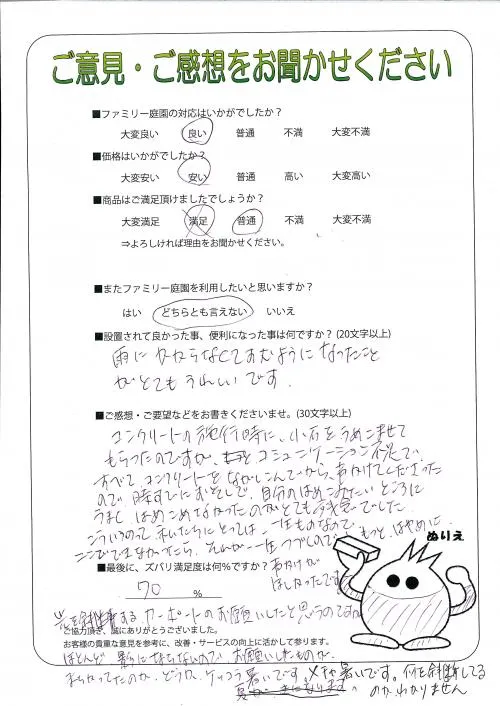 ご意見・ご感想をお聞かせください
■ファミリー庭園の対応はいかがでしたか？
大変良い 良い 普通 不満 大変不満
■価格はいかがでしたか？
大変安い 安い 普通 高い 大変高い
■商品はご満足頂けましたでしょうか？
大変満足 満足 普通 不満 大変不満
⇒よろしければ理由をお聞かせください。
■またファミリー庭園を利用したいと思いますか？
はい どちらとも言えない いいえ
■設置されて良かった事、便利になった事は何ですか？ (20文字以上)
雨にかからなくてすむようになったこと
がとてもうれしいです.
■ご感想・ご要望などをお書きくださいませ。(30文字以上)
コンクリートの施行時に、小石をうめこませて
もらったのですが、コミュニケーション不足で、
すべて、コンクリートをながしこんでから、声かけてくださった
ので、時すでにおそしで、自分のはめこみたいところに
うまくはめこめなかったのがとても残念でした。
こういうのって、私たちにとっては、一生ものなので
ここでできなかったら、それが一生つづくので、もっと、はやめに
声かけが
ほしかったです
ぬりえ
■最後に、ズバリ満足度は何％ですか？
70 %
する、カーポートのお願いしたと思うのですが
ご協力頂き、誠にありがとうございました。
お客様の貴重な意見を参考に、改善・サービスの向上に活かして参ります。
ほとんど 影にならないので お願いしたものか、
まちがってたのか、どうか、ケッコウ暑いです。メチャ暑いです。何を斜断してる
のか、わかりません